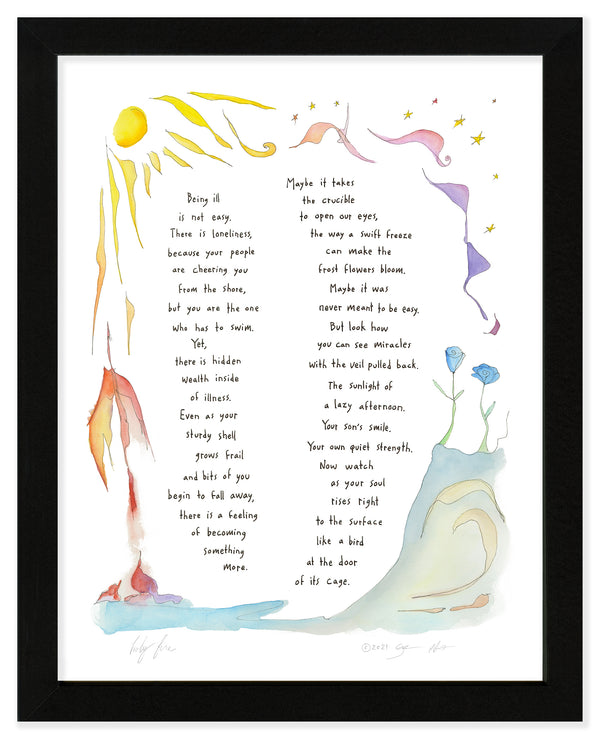 Being ill
is not easy.
There is loneliness,
because your people
are cheering you
from the shore,
but you are the one
who has to swim.
Yet,
there is hidden
wealth inside
of illness.
Even as your
sturdy shell
grows frail
and bits of you
begin to fall away,
there is a feeling
of becoming
something
more.
Maybe it takes
the crucible
to open our eyes,
the way a swift freeze
can make the
frost flowers bloom.
Maybe it was
never meant to be easy.
But look how
you can see miracles
with the veil pulled back.
The sunlight of
a lazy afternoon.
Your son's smile.
Your own quiet strength.
Now watch
as your soul
rises right
to the surface
like a bird
at the door
of its cage.
holy fire
©2021